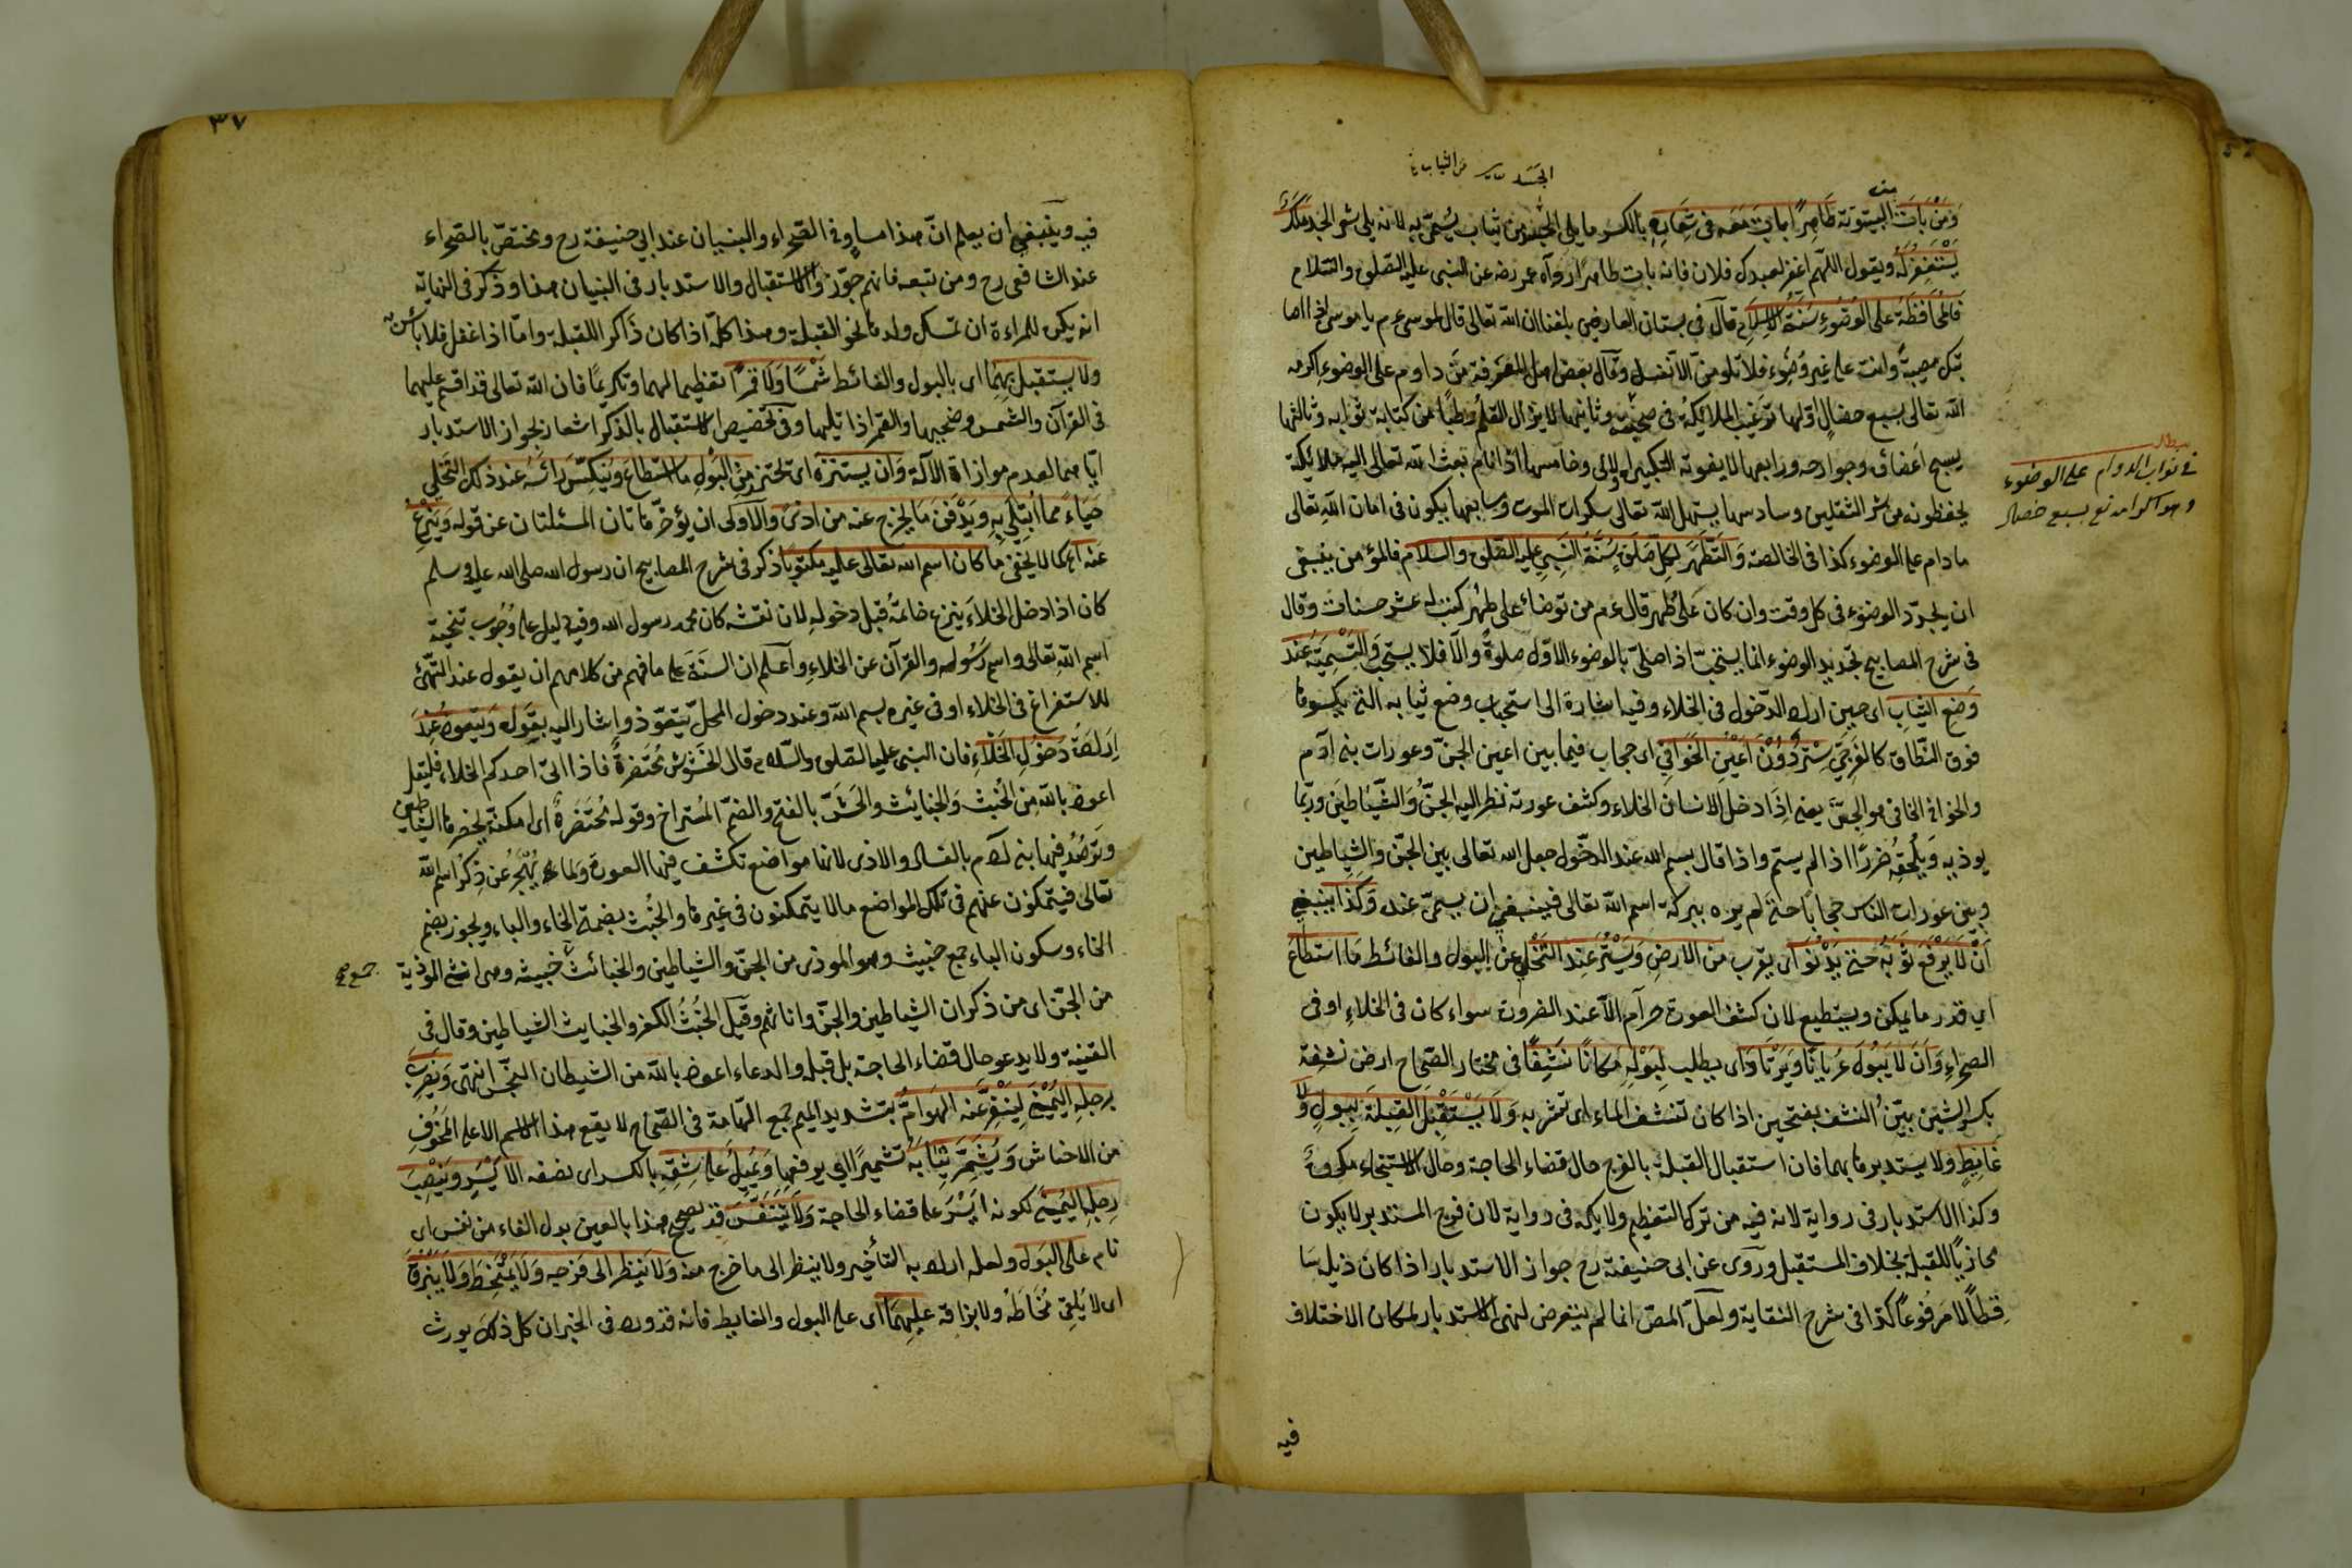 الجسد من الثياب
وَمَنْ بَاتَ البيتوتة طَاهِرًا بات مَعَه فى شِعَارِهِ بالكسر ما يلى الجسد من ثياب يسمّى به لانه يلى شعر الجسد مَلَكٌ
يَسْتَغْفِرُ لَهُ ويقول اللّهم اغفر لعبدك فلان فانه بات طاهرًا رواه عمر رضه عن النبى عليه الصّلوة والسّلام
فَالمُحَافَظَةُ على الوُضُوءِ سُنَّةُ الاِسْلَامِ قال فى بستان العارفين بلغنا ان الله تعالى قال لموسى عم يا موسى اذا اصا
بتك مصيبةٌ وانت على غير وُضُوء فلا تلومنّ الّا نفسك وقال بعض اهل المعرفة مَن داوم على الوضوء اكرمه
الله تعالى بسبع خصالٍ اولها ترغب الملائكة فى صحبته وثانيها لا يزال القلم رطبًا من كتابة ثوابه وثالثها
يسبح اعضاؤه وجوارحه ورابعها لا يفوته التكبيرة الاولى وخامسها اذا نام بعث الله تعالى اليه ملائكة
يحفظونه من شر الثقلين وسادسها يسهل الله تعالى سكرات الموت وسابعها يكون فى امان الله تعالى
مطلب
فى ثواب الدوام على الوضوء
وهو اكرام الله تع بسبع خصال
ما دام على الوضوء كذا فى الخالصة وَالتَّطَهُّرُ لِكُلِّ صَلَوةٍ سُنَّةُ النَّبِىِ عليه الصّلوة والسلام فالمؤمن ينبغى
ان يجدّد الوضوء فى كل وقت وان كان على طُهر قال عم من توضاء على طُهْر كتب له عشر حسنات وقال
فى شرح المصابيح تجديد الوضوء انما يستحبّ اذا صلّى بالوضوء الاوّل صلوةً والّا فلا يستحب وَالتَّسْمِيَةُ عِنْدَ
وَضْعِ الثِّيَابِ اى حين اراد الدّخول فى الخلاء وفيه اشارة الى استحباب وضع ثيابه التى يكسوها
فوق النّطاق كالفرجىّ سِتْرٌ دُوْنَ اَعْيُنِ الخَوَافِى اى حجاب فيما بين اعين الجنّ وعورات بنى آدم
والخوافى الخافى هو الجنّ يعنى اِذَا دخل الانسان الخلاء وكشف عورته نظر اليه الجنّ وَالشّيَاطين وربّما
يوذيه وَيُلْحِقُهُ ضررًا اذا لم يستمّ واذا قال بسم الله عند الدخول جعل الله تعالى بين الجنّ والشياطين
وبين عورات الناس حجابًا حتى لم يره ببركة اسم الله تعالى فينبغى ان يسمىّ عنده وَكَذَا يَنْبَغِى
اَنْ لَا يَرْفَعَ ثَوْبَهُ حَتَى يَدْنُوَ اى يقرب من الارضِ وَيَسْتُرَ عِنْدَ التَّخَلِّى عن البول والغائط مَا استطَاعَ
اى قدر ما يمكن ويستطيع لان كشف العورة حرام الّا عند الضرورة سواء كان فى الخلاءِ او فى
الصحراءِ وَاَنْ لَا يَبُولَ عُرْيَانًا وَيَرْتَادَ اى يطلب لِبَوْلِهِ مَكَانًا نَشِفًا فى مختار الصّحاح ارض نشفة
بكسر الشين بيّن النشف بفتحين اذا كان تنشف الماء اى تشربه وَلَا يَسْتَقْبِلَ القِبلَةَ بِبولٍ وَلَا
غَائِطٍ ولا يستدبرها بهما فان استقبال القبلة بالفرج حال قضاء الحاجة وحال الاستنجاء مكروهٌ
وكذا الاستدبار فى رواية لانه فيه من ترك التعظيم ولا يكره فى رواية لان فرج المستدبر لا يكون
محاذيًا للقبلة بخلاف المستقبل وروى عن ابى حنيفة رح جواز الاستدبار اذا كان ذيله سا
قطًا لا مَرفُوعًا كذا فى شرح النقاية ولعلّ المصّ انما لم يتعرض لنهى الاستدبار لمكان الاختلاف
فيه
٣٧
فيه وينبغى ان يعلم انّ هذا مساوٍ فى الصّحراء والبنيان عند ابى حنيفة رح ومختصّ بالصّحراء
عند الشافعى رح ومن تبعه فانهم جوّزوا الاستقبال والاستدبار فى البنيان هذا وذكر فى النهاية
انه يكره للمراءة ان تمسك ولدها نحو القبلة وهذا كلّه اذا كان ذاكرا للقبلة وامّا اذا غفل فلا بأس به
ولا يستقبل بِهِمَا اى بالبول والغائط شَمْسًا وَلَا قَمَرًا تعظيما لهما وتكريمًا فان الله تعالى قد اقسم عليهما
فى القرآن والشمس وضحيها والقمر اذا تليها وفى تخصيص الاستقبال بالذكر اشعار بجواز الاستدبار
ايّاهما لعدم موازاة الآلة وَاَن يستنزه اى تحترز مِنَ البَوْلِ مَا اسْتَطَاعَ وَيُنَكِّسَ رَائْسَهُ عند ذلك التَّخَلِّى
حَيَاءً مِمَا اُبْتُلِىَ بِهِ وَيَدْفَنَ مَا يَخْرج عنه من اذىً والاَولى ان يؤخّر هاتان المسئلتان عن قوله وَيَنْزِعَ
عَنْه كما لا يخفى مَا كان اسم الله تعالى عليه مكتوبًا ذكر فى شرح المصابيح ان رسول الله صلى الله عليه وسلم
كان اذا دخل الخلاءَ ينزع خاتمَهُ قبل دخوله لان نقشه كان محمد رسول الله وفيه دليل على وُجُوب تنحية
اسم اللهِ تعالى واسم رَسُوله والقرآن عن الخلاءِ واعلم ان السنّةَ على ما فهم من كلامهم ان يقول عند التهيّئ
للاستفراغ فى الخلاء او فى غيره بسم الله وعند دخول المحلّ يتعوّذ واشار اليه بقوله وَيَتَعوذَ عِنْدَ
اِرَادَةِ دُخُولِ الخَلَاءِ فان النبى عليه الصلوة والسّلام قال الحشوش مُحْتَضَرَةٌ فاذا اتى احدكم الخلاء فليقل
اعوذ بالله مِن الخُبْثِ وَالخبائث والحَشّ بالفتح والضمّ المُستراح وقوله مُحْتَضَرَةٌ اى امكنة يحضرها الشياطين
وتَرَصُّد فيها بنى آدم بالفساد والاذى لانها مواضع تكشف فيها العورة ولما يُهْجَرُ عن ذِكْر اسم الله
تعالى فيتمكنون عنهم فى تلك المواضع ما لا يتمكنون فى غيرها والخُبُث بضمة الخاء والباء ويجوز بضم
الخاء وسكون الباء جمع خبيث وهو الموذى من الجنّ والشياطين والخبائث خبيثة وهى انثى الموذية
جمع صح
من الجنّ اى من ذكران الشياطين والجنّ واناثهم وقيل الخُبْثُ الكفر والخبايث الشياطين وقال فى
القنية ولا يدعو حال قضاء الحاجة بل قبله والدعاء اعوذ بالله من الشيطان النجّس انتهى وَيَضْرِبَ
بِرجلِهِ اليُمْنَى لِيَنْفِرَ عَنه الهَوَامُّ بتشديد الميم جمع الهّامة فى الصّحاح لا يقع هذا الاسم الا على المَخُوفِ
من الاحناش وَيُشَمِّرَ ثِيَابَهُ تشميرًا اى يرفعها وَيَميلَ على شِقِّهِ بالكسر اى نصفه الاَيْسَرِ وَيَنْصِبَ
رِجلَهِ اليُمنَى لكونه ايْسَرَ على قضاء الحاجة وَلَا يَتَنَفَّسَ قد يصحح هذا بالعين بدل الفاء من نعس اى
نام على البَول ولعله اراد به التأخير ولا ينظر الى ما خرج منه وَلَا يَنْظر الى فَرْجِهِ وَلَا يَمْتَخِطَ وَلَا يَبْزُقَ
اى لا يُلقِىَ مُخَاطَهُ ولا بزاقه عليهِمَا اى على البول والغايط فانه قد ورد فى الخبر ان كل ذلك يورث